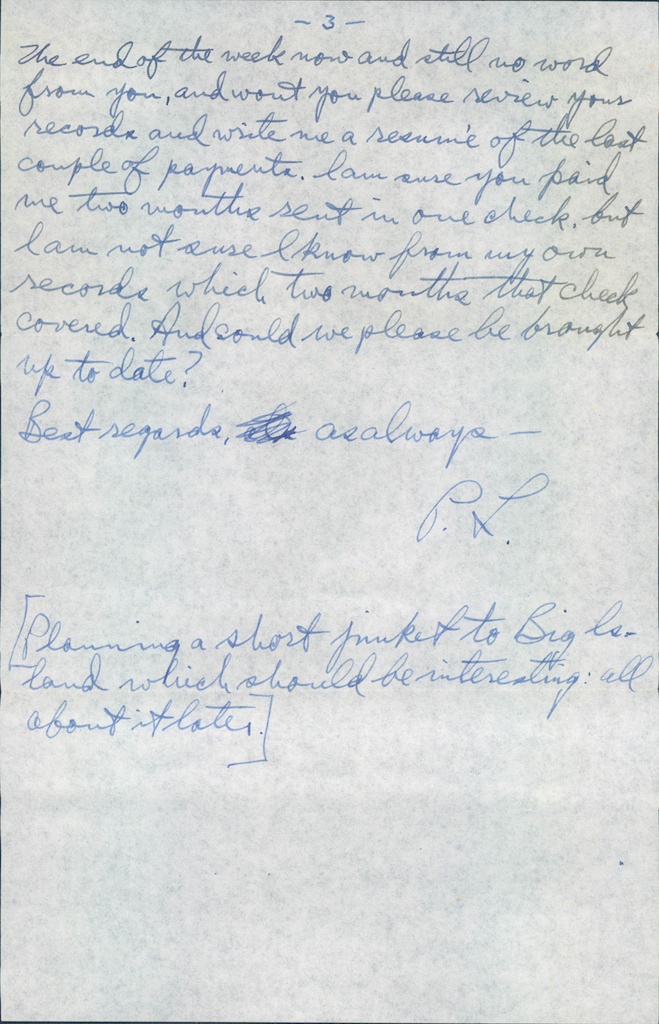 - 3 -
The end of the week now and still no word
from you, and wont you please review your
records and write me a resumé of the last
couple of payments. I am sure you paid
me two months rent in one check, but
I am not sure I know from my own
records which two months that check
covered. And could we please be brought
up to date?
Best regards, as always —
P. L.
[Planning a short junket to Big Is-
land which should be interesting: all
about it later.]